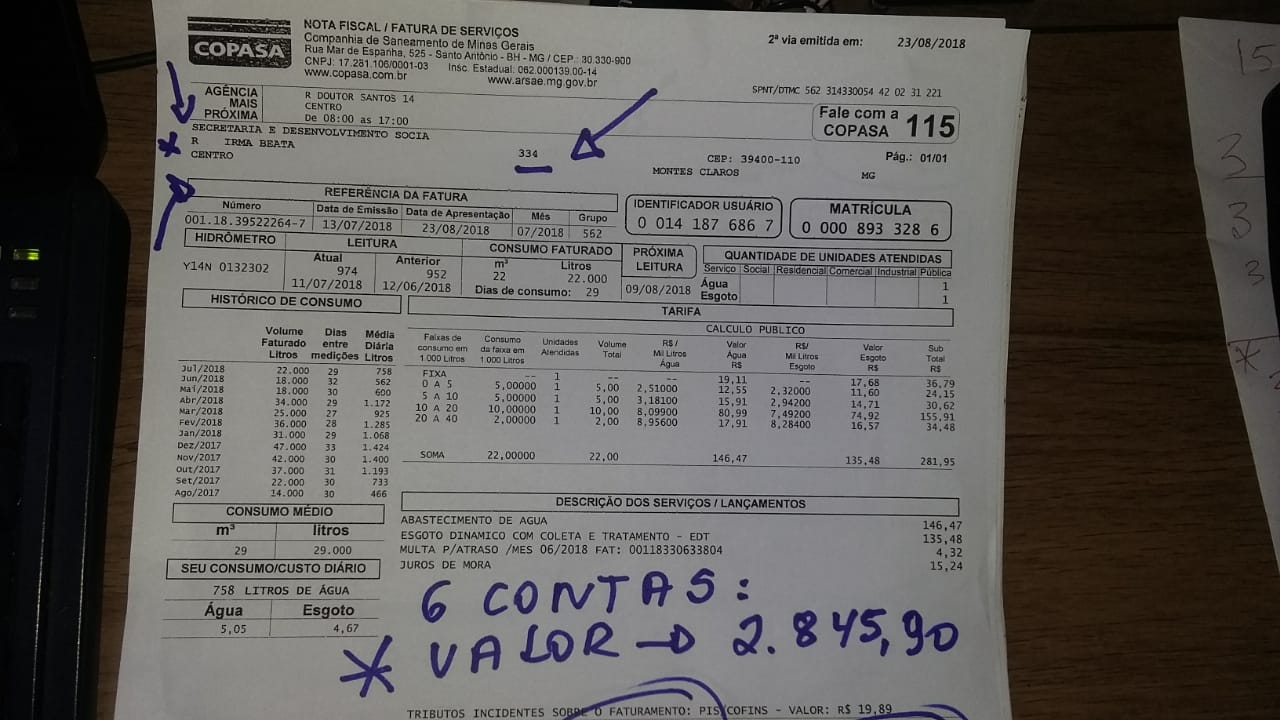 COPASA
NOTA FISCAL / FATURA DE SERVIÇOS
Companhia de Saneamento de Minas Gerais
Rua Mar de Espanha, 525 - Santo Antônio - BH - MG / CEP.: 30.330-900
CNPJ: 17.281.106/0001-03 Insc. Estadual: 062.000139.00-14
www.copasa.com.br www.arsae.mg.gov.br
2ª via emitida em: 23/08/2018
SPNT/DTMC 562 314330054 42 02 31 221
AGÊNCIA MAIS PRÓXIMA
R DOUTOR SANTOS 14
CENTRO
De 08:00 as 17:00
Fale com a COPASA 115
SECRETARIA E DESENVOLVIMENTO SOCIA
R IRMA BEATA 334
CENTRO
CEP: 39400-110
MONTES CLAROS MG
Pág.: 01/01
REFERÊNCIA DA FATURA
Número Data de Emissão Data de Apresentação Mês Grupo
001.18.39522264-7 13/07/2018 23/08/2018 07/2018 562
IDENTIFICADOR USUÁRIO
0 014 187 686 7
MATRÍCULA
0 000 893 328 6
HIDRÔMETRO
Y14N 0132302
LEITURA
Atual Anterior
974 952
11/07/2018 12/06/2018
CONSUMO FATURADO
m³ Litros
22 22.000
Dias de consumo: 29
PRÓXIMA LEITURA
09/08/2018
QUANTIDADE DE UNIDADES ATENDIDAS
Serviço Social Residencial Comercial Industrial Pública
Água 1
Esgoto 1
HISTÓRICO DE CONSUMO
Volume Faturado Litros Dias entre medições Média Diária Litros
Jul/2018 22.000 29 758
Jun/2018 18.000 32 562
Mai/2018 18.000 30 600
Abr/2018 34.000 29 1.172
Mar/2018 25.000 27 925
Fev/2018 36.000 28 1.285
Jan/2018 31.000 29 1.068
Dez/2017 47.000 33 1.424
Nov/2017 42.000 30 1.400
Out/2017 37.000 31 1.193
Set/2017 22.000 30 733
Ago/2017 14.000 30 466
TARIFA
CALCULO PUBLICO
Faixas de consumo em 1 000 Litros Consumo da faixa em 1.000 Litros Unidades Atendidas Volume Total R$ / Mil Litros Água Valor Água R$ R$/ Mil Litros Esgoto Valor Esgoto R$ Sub Total R$
FIXA -- 1 -- -- 19,11 -- 17,68 36,79
0 A 5 5,00000 1 5,00 2,51000 12,55 2,32000 11,60 24,15
5 A 10 5,00000 1 5,00 3,18100 15,91 2,94200 14,71 30,62
10 A 20 10,00000 1 10,00 8,09900 80,99 7,49200 74,92 155,91
20 A 40 2,00000 1 2,00 8,95600 17,91 8,28400 16,57 34,48
SOMA 22,00000 22,00 146,47 135,48 281,95
CONSUMO MÉDIO
m³ litros
29 29.000
SEU CONSUMO/CUSTO DIÁRIO
758 LITROS DE ÁGUA
Água Esgoto
5,05 4,67
DESCRIÇÃO DOS SERVIÇOS / LANÇAMENTOS
ABASTECIMENTO DE AGUA 146,47
ESGOTO DINAMICO COM COLETA E TRATAMENTO - EDT 135,48
MULTA P/ATRASO /MES 06/2018 FAT: 00118330633804 4,32
JUROS DE MORA 15,24
6 CONTAS:
* VALOR → 2.845,90
TRIBUTOS INCIDENTES SOBRE O FATURAMENTO: PIS/COFINS - VALOR: R$ 19,89